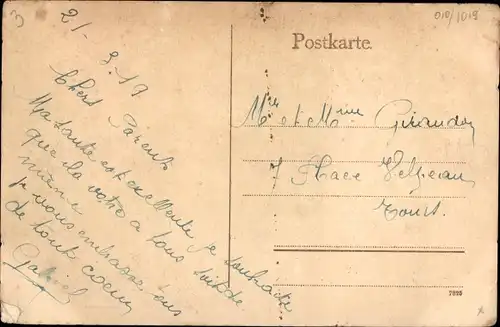 21-3.19
Chers Parents
Ma santé est excellente je souhaite
que la votre a tous soit de
même
je vous embrasse tous
de tout coeur
Gabriel
Postkarte.
Mr et Mme Giraudon
7 Place Velpeau
Tours.
7025